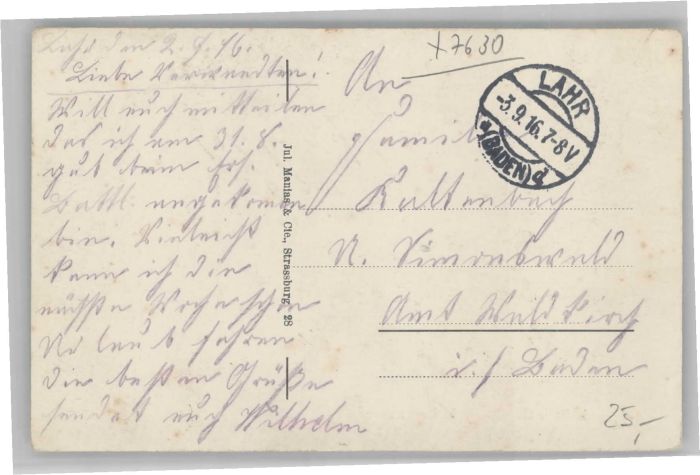 Lahr den 2.9.16.
Liebe Verwandten!
Will euch mitteilen
das ich am 31.8.
gut beim Ers.
Battl. angekomen
bin. Vieleicht
kann ich die
nächste Woche schon
Urlaub fahren
die besten Grüße
sendet euch Wilhelm
Jul. Manias & Cie., Strassburg 28
+7630
LAHR
-3.9.16.7-8V
(BADEN)
An
Familie
Kaltenbach
N. Simonswald
Amt Waldkirch
i./ Baden
25,-